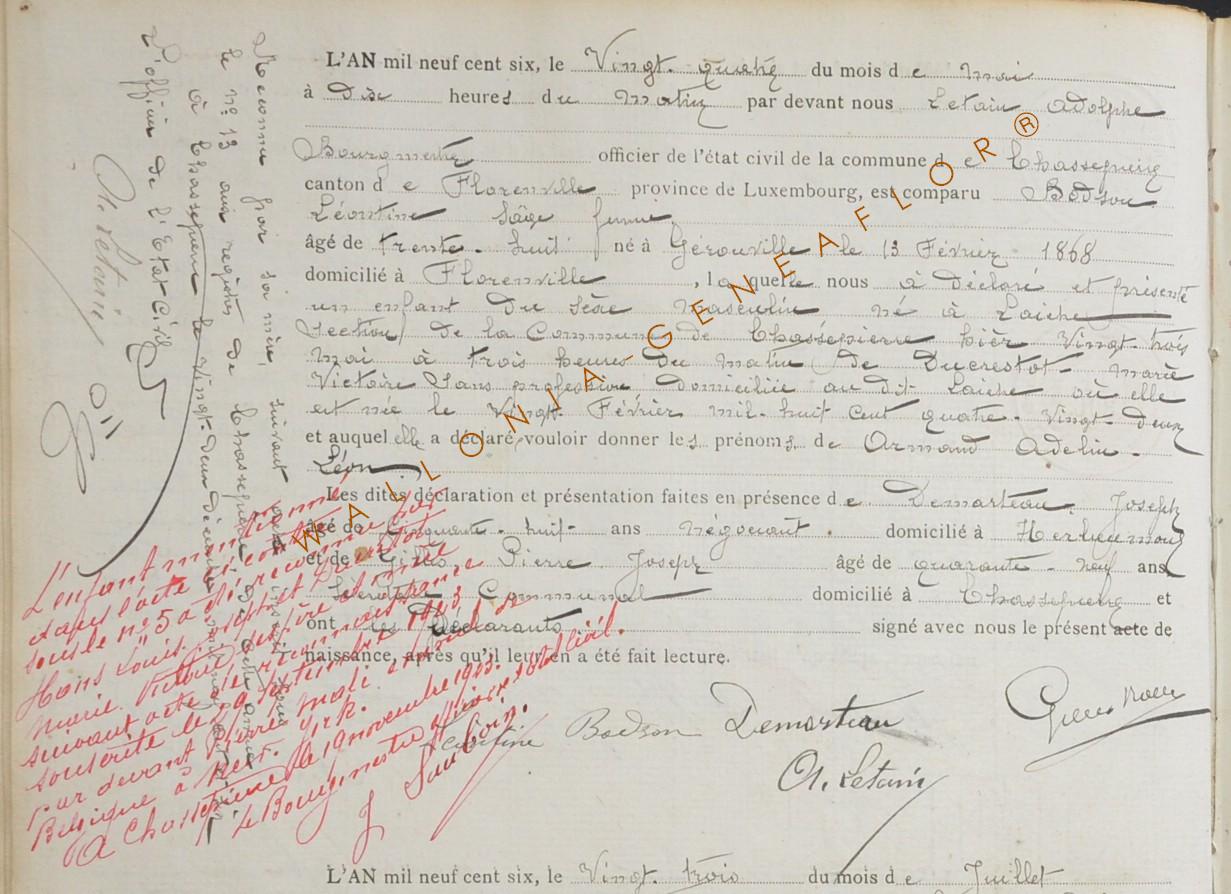 L'AN mil neuf cent six, le Vingt-quatre du mois de mai
à Dix heures du Matin par devant nous Letain Adolphe
Bourgmestre officier de l'état civil de la commune de Chassepierre
canton de Florenville province de Luxembourg, est comparu Bodson
Léontine Sage femme
âgé de trente-huit né à Gérouville le 13 Février 1868
domicilié à Florenville, laquelle nous a déclaré et présenté
un enfant du sexe masculin né à Laiche
Section de la Commune de Chassepierre hier Vingt-trois
Mai à trois heures du Matin de Ducrestot Marie
Victoire Sans profession domiciliée au dit Laiche où elle
est née le Vingt Février mil-huit cent quatre-Vingt deux
et auquel elle a déclaré vouloir donner les prénoms de Armand Adelin
Léon
Les dites déclaration et présentation faites en présence de Demarteau Joseph
âgé de Cinquante-huit ans négociant domicilié à Herbeumont
et de Gilles, Pierre Joseph âgé de quarante-neuf ans
Secrétaire Communal domicilié à Chassepierre et
ont les déclarants signé avec nous le présent acte de
naissance, après qu'il leur en a été fait lecture.
Léontine Bodson Demarteau Gilles
A. Letain
Reconnu par sa mère, suivant acte inscrit sous
le n° 13 aux registres de Chassepierre
à Chassepierre le Vingt-deux décembre
L'officier de l'Etat Civil
A. Letain
L'enfant mentionné
dans l'acte ci-contre
sous le n° 5 a été reconnu par
Hans Louis
Marie Victoire
suivant acte de reconnaissance
souscrite le
par devant
Belgique à New-York.
A Chassepierre le 19 novembre 1913.
Le Bourgmestre officier de l'état civil.
WALLONIA-GENEAFLOR®
L'AN mil neuf cent six, le Vingt-trois du mois de Juillet